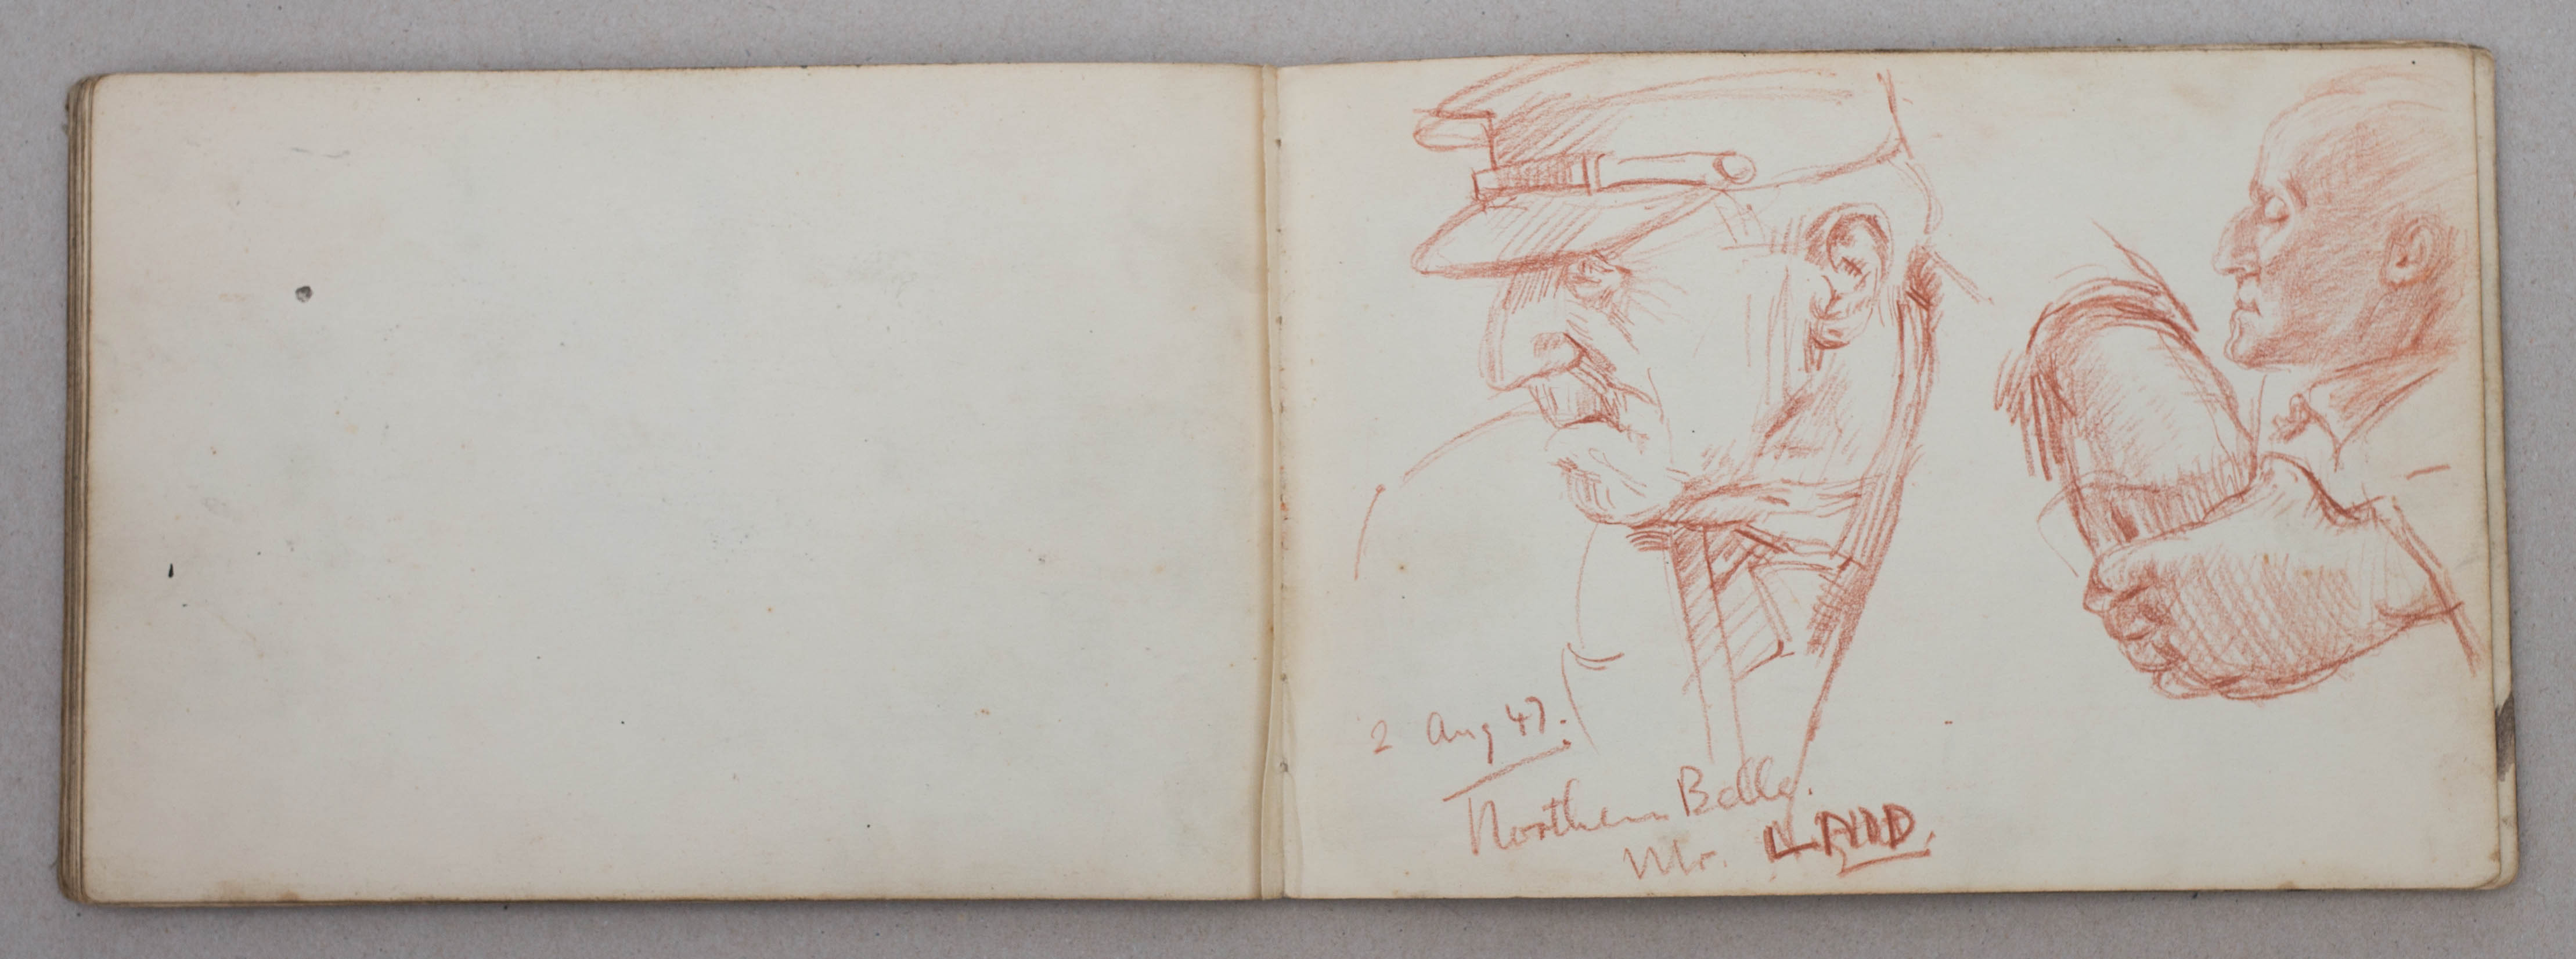 2 Aug 47.
Northern Belle.
Mr.